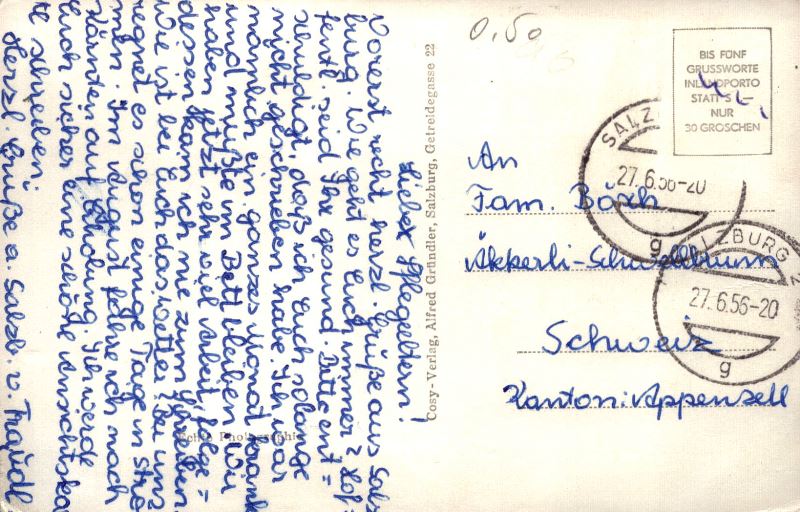 Liebe Pflegeltern!
Vorerst recht herzl. Grüße aus Salz=
burg. Wie geht es Euch immer? Hof=
fentl. seid Ihr gesund. Bitte ent=
schuldigt, daß ich Euch solange
nicht geschrieben habe. Ich war
nämlich ein ganzes Monat krank
und mußte im Bett bleiben. Wir
haben jetzt sehr viel Arbeit, folge=
dessen kam ich nie zum Schreiben.
Wie ist bei Euch das Wetter? Bei uns
regnet es schon einige Tage in Strö
men. Im August fahre ich nach
Kärnten auf Erholung. Ich werde
Euch sicher eine schöne Ansichtska
te schreiben.
Herzl. Grüße a. Salzb. v. Traudl
Echte Photographie
Cosy-Verlag, Alfred Gründler, Salzburg, Getreidegasse 22
0.50
BIS FÜNF
GRUSSWORTE
INLANDPORTO
STATT S 1.-
NUR
30 GROSCHEN
SALZ
27.6.56-20
g
SALZBURG 2
27.6.56-20
g
An
Fam. Bösch
Äkkerli-Schwellbrunn
Schweiz
Kanton: Appenzell